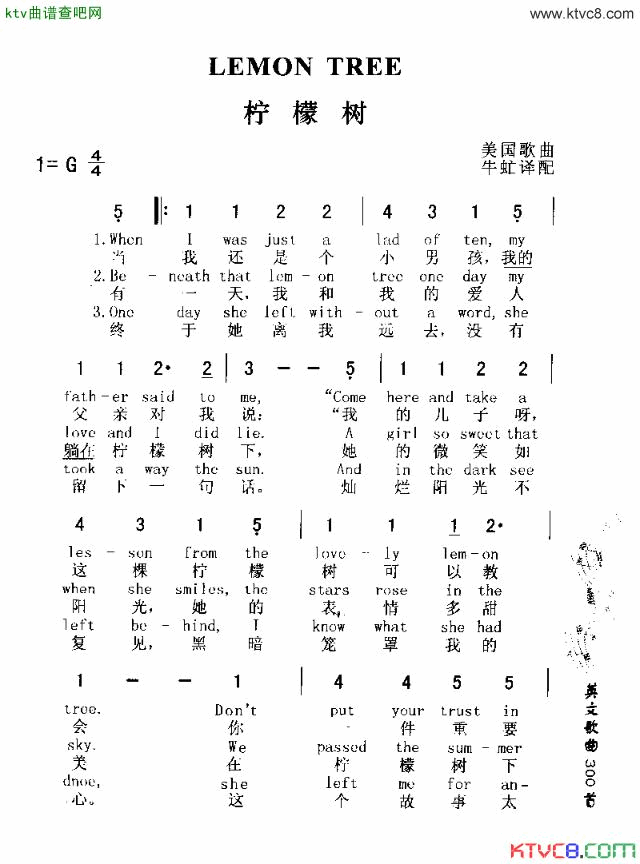 ktv曲谱查吧网
www.ktvc8.com
LEMON TREE
柠檬树
1=G 4/4
美国歌曲
牛虹译配
5 ‖: 1 1 2 2 | 4 3 1 5 |
1.When I was just a lad of ten, my
当 我 还 是 个 小 男 孩，我的
2.Be - neath that lem - on tree one day my
有 一 天，我 和 我 的 爱 人
3.One day she left with - out a word, she
终 于 她 离 我 远 去，没 有
1 1 2· 2 | 3 - - 5 | 1 1 2 2 |
fath-er said to me, “Come here and take a
父 亲 对 我 说： “我 的 儿 子 呀，
love and I did lie. A girl so sweet that
躺在 柠 檬 树 下， 她 的 微 笑 如
took a way the sun. And in the dark see
留 下 一 句 话。 灿 烂 阳 光 不
4 3 1 5 | 1 1 1 2· |
les - son from the love - ly lem-on
这 棵 柠 檬 树 可 以 教
when she smiles, the stars rose in the
阳 光，她 的 表 情 多 甜
left be - hind, I know what she had
复 见，黑 暗 笼 罩 我 的
1 - - 1 | 4 4 5 5 |
tree. Don't put your trust in
会 你 一 件 重 要
sky. We passed the sum - mer
美 在 柠 檬 树 下
dnoe, she left me for an-
心。 这 个 故 事 太
英文歌曲300首
KTVC8.COM